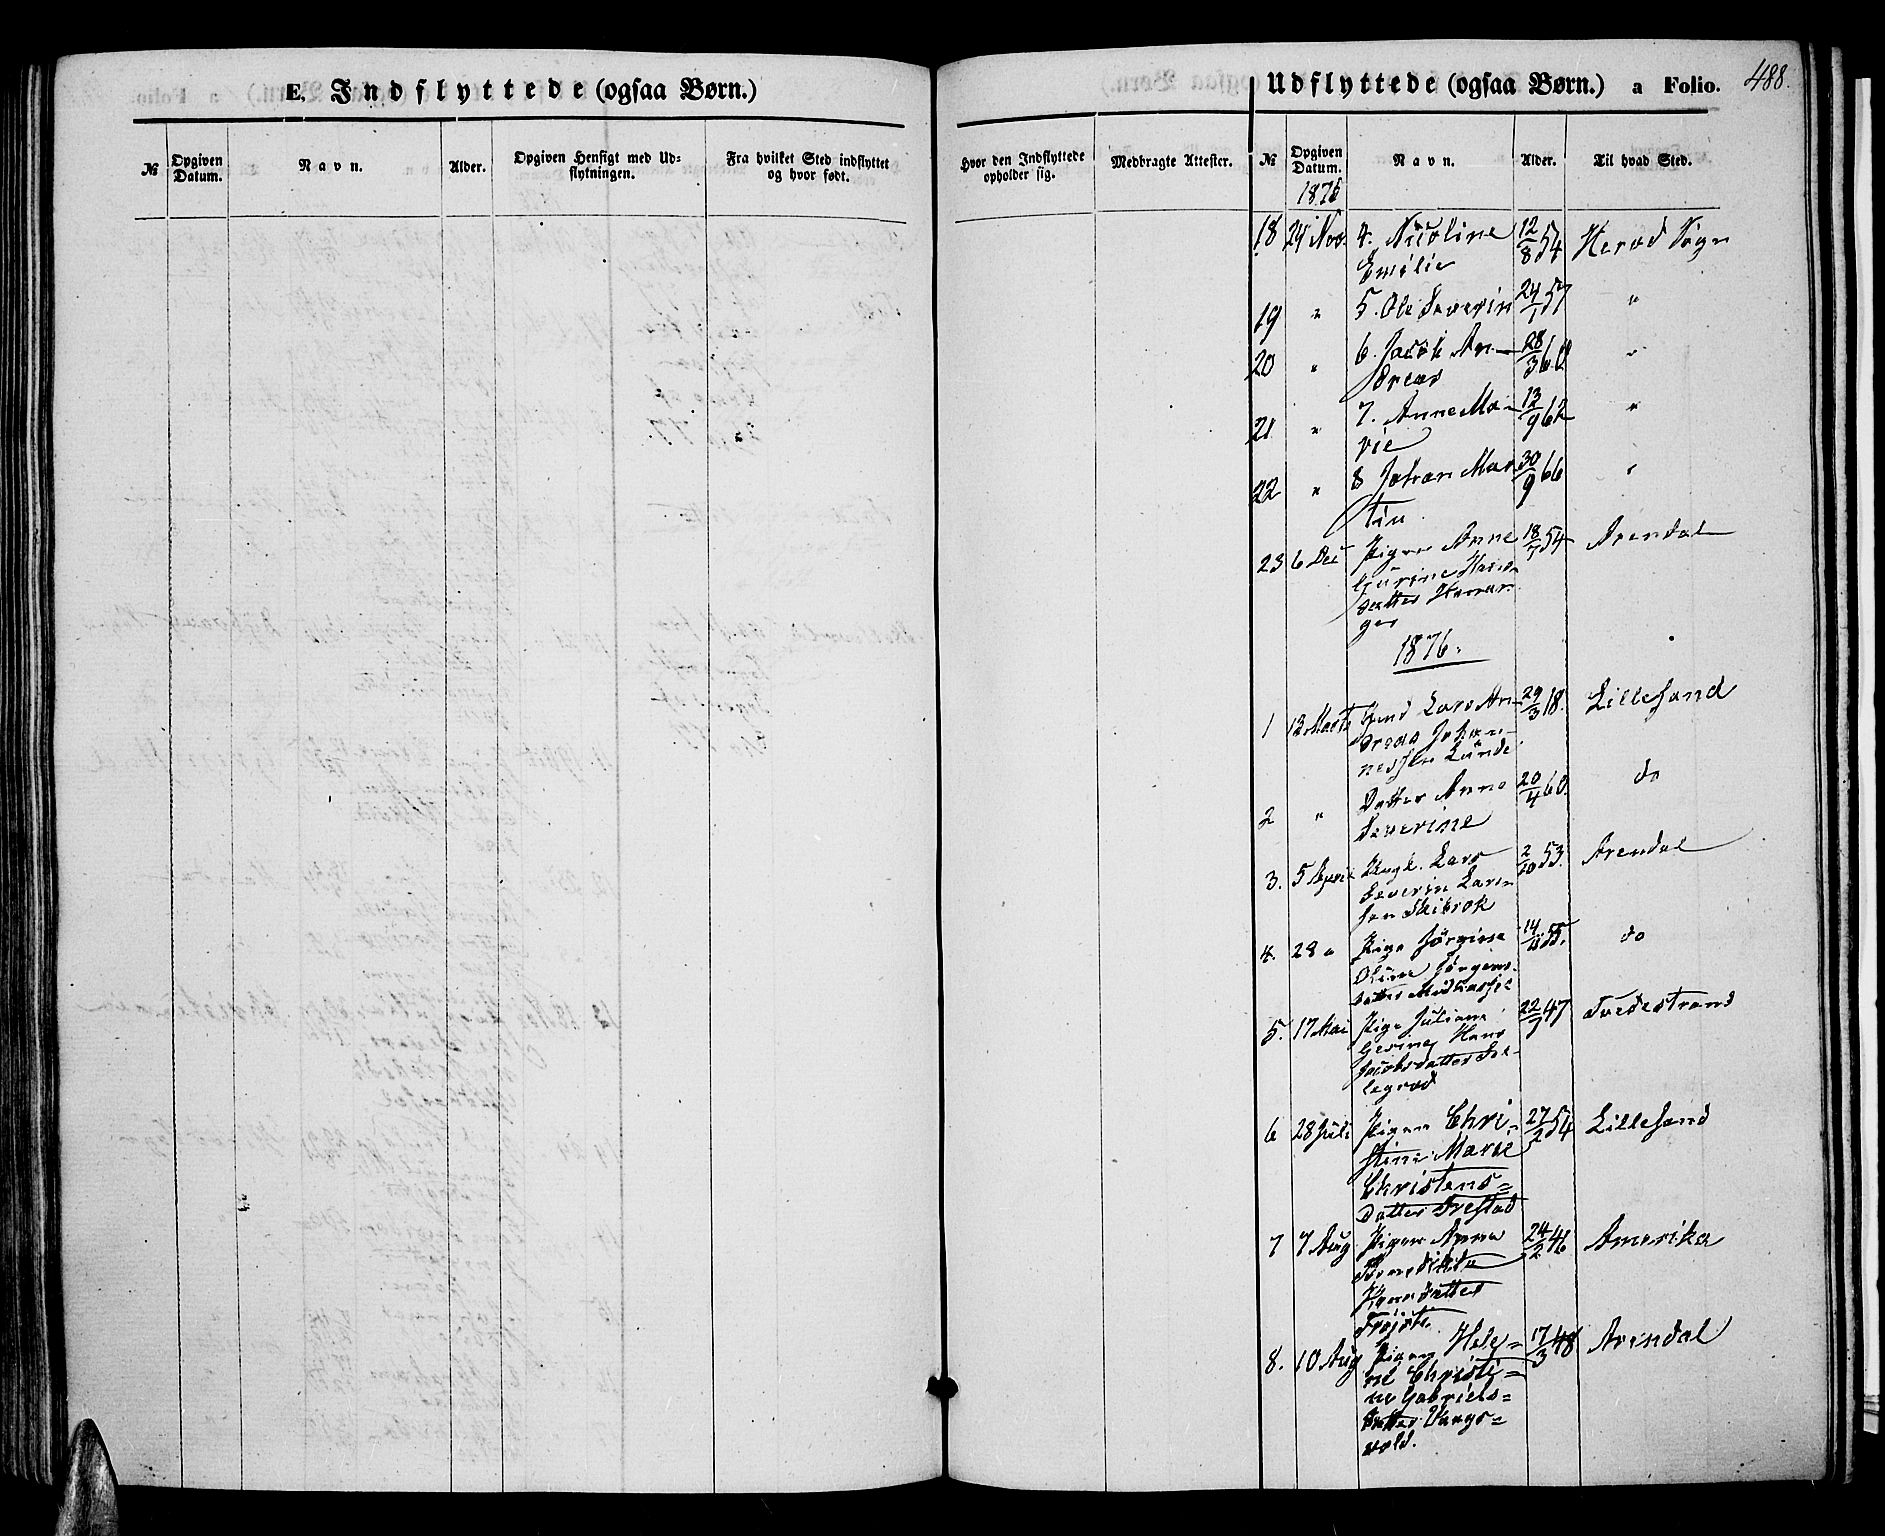 E. Indflyttede (ogsaa Børn.)
№
Opgiven Datum.
Navn.
Alder.
Opgiven Hensigt med Ud=
flytningen.
Fra hvilket Sted indflyttet
og hvor født.
Udflyttede (ogsaa Børn.) a Folio. 488.
Hvor den Indflyttede
opholder sig.
Medbragte Attester.
№
Opgiven Datum.
Navn.
Alder.
Til hvad Sted.
1875
18 24 Nov. 4. Nicoline 12/8 54 Herød Sogn
Emilie
19 " 5. Ole Severin 24/1 57 "
20 " 6. Jacob An- 28/3 60 "
dreas
21 " 7. Anne Ma- 13/9 62 "
rie
22 " 8 Johan Mar 30/9 66 "
tin
23 6 Dec Pigen Anne 18/7 54 Arendal
Gurine Hans
datter
1876.
1 12 Marts Lars An- 29/3 18. Lillesand
dreas Johan-
nessen Lunde
2 " Datter Anne 20/4 60. do
Severine
3. 5 April Ungk. Lars 2/10 53. Arendal
Severin Lar-
sen Skibrok
4. 28 " Pige Jørgine 14/11 55. do
Oline Jørgens
datter
5. 17 Mai Pige Juliane 22/7 47 Tvedestrand
Gerine Hans
Jacobsdatter
6 28 Juli Pigen Chri- 27/2 54 Lillesand
stine Marie
Christens=
datter Trestad
7 7 Aug Pigen Anne 24/2 46 Amerika
Benedikte
datter
8. 10 Aug Pigen Hele= 17/3 48 Arendal
ne Christi=
ne Gabriels=
datter Vangs=
vold.